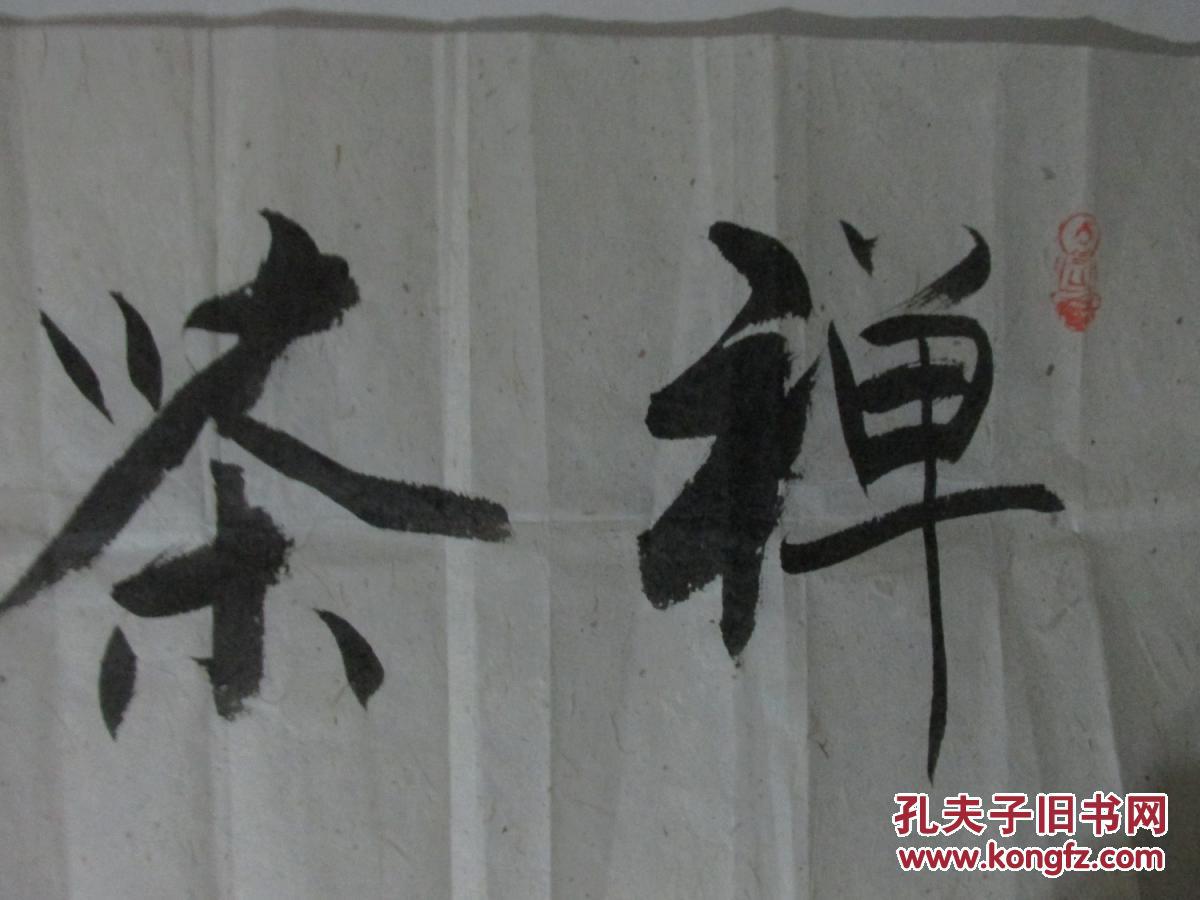 禅茶
孔夫子旧书网
www.kongfz.com